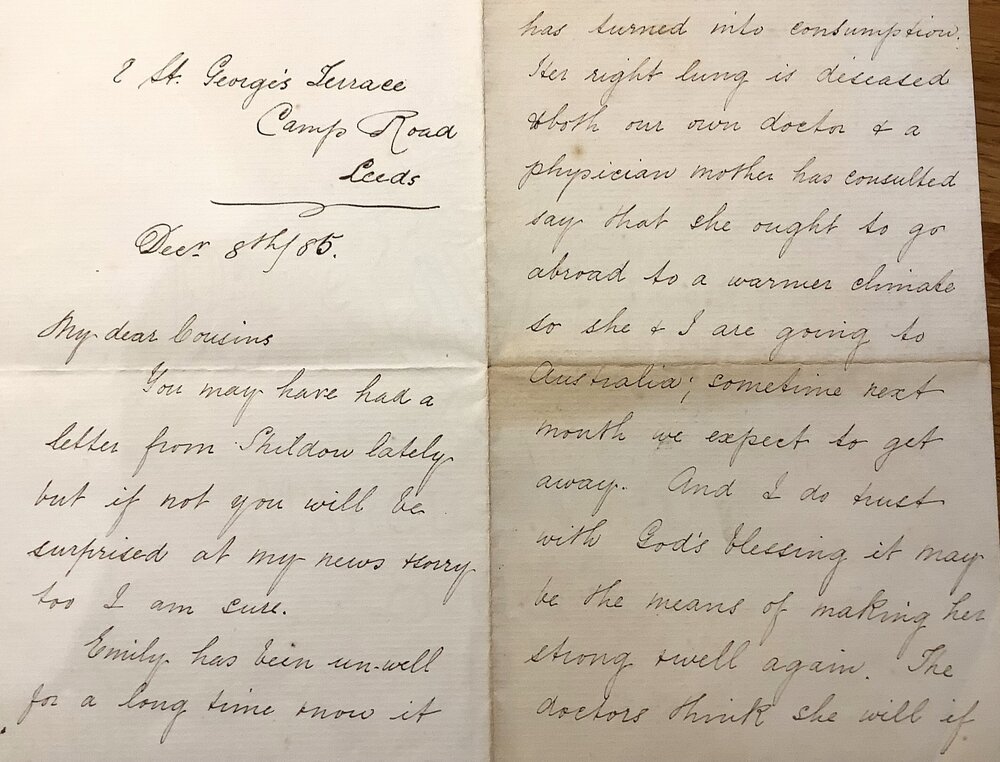 2 St. George's Terrace
Camp Road
Leeds
Decr. 8th/85.
My dear Cousins
You may have had a
letter from Shildon lately
but if not you will be
surprised at my news & sorry
too I am sure.
Emily has been un-well
for a long time & now it
has turned into consumption.
Her right lung is diseased
& both our own doctor & a
physician mother has consulted
say that she ought to go
abroad to a warmer climate
so she & I are going to
Australia; sometime next
month we expect to get
away. And I do trust
with God's blessing it may
be the means of making her
strong & well again. The
doctors think she will if